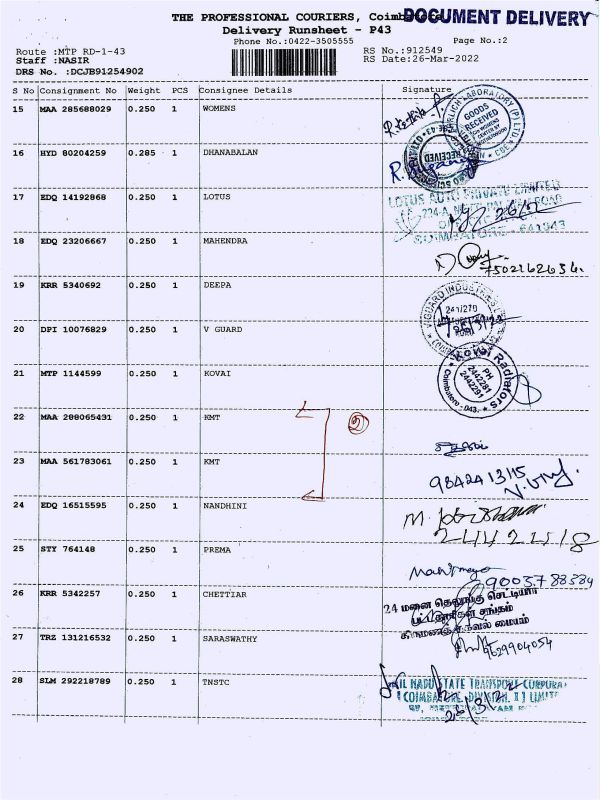 THE PROFESSIONAL COURIERS,
DOCUMENT DELIVERY
Delivery Runsheet - P43
Phone No.:0422-3505555 Page No.:2
Route :MTP RD-1-43 RS No.:912549
Staff :NASIR RS Date:26-Mar-2022
DRS No. :DCJB91254902
S No Consignment No Weight PCS Consignee Details Signature
15 MAA 285688029 0.250 1 WOMENS
GOODS RECEIVED
16 HYD 80204259 0.285 1 DHANABALAN
RECEIVED
17 EDQ 14192868 0.250 1 LOTUS
LOTUS AUTO PRIVATE LIMITED
COIMBATORE - 641043
18 EDQ 23206667 0.250 1 MAHENDRA
7502162634.
19 KRR 5340692 0.250 1 DEEPA
VIGUARD INDUSTRIES
20 DPI 10076829 0.250 1 V GUARD
21 MTP 1144599 0.250 1 KOVAI
Kovai Radiators
PH
2442281
2442291
Coimbatore - 043.
22 MAA 288065431 0.250 1 KMT
2
23 MAA 561783061 0.250 1 KMT
9842413115
24 EDQ 16515595 0.250 1 NANDHINI
25 STY 764148 0.250 1 PREMA
9003788384
26 KRR 5342257 0.250 1 CHETTIAR
24 மனை தெலுங்கு செட்டியார்
சங்கம்
மையம்
27 TRZ 131216532 0.250 1 SARASWATHY
9629904054
28 SLM 292218789 0.250 1 TNSTC
TAMIL NADU STATE TRANSPORT CORPORA